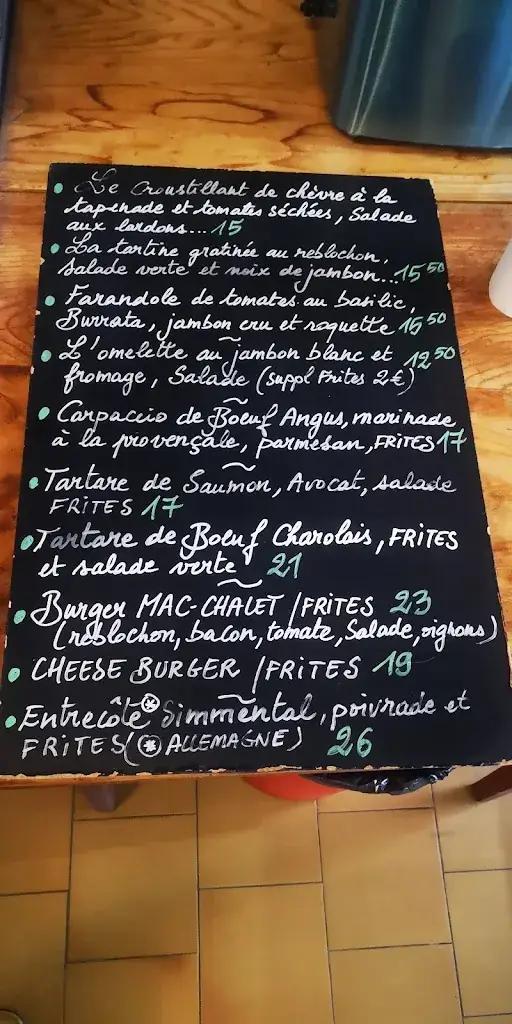 • Le croustillant de chèvre à la
tapenade et tomates séchées, Salade
aux lardons... 15
• La tartine gratinée au reblochon,
salade verte et noix de jambon... 15 50
• Farandole de tomates au basilic,
Burrata, jambon cru et roquette 15 50
• L'omelette au jambon blanc et 12 50
fromage, Salade (suppl Frites 2€)
• Carpaccio de Boeuf Angus, marinade
à la provençale, parmesan, FRITES 17
• Tartare de Saumon, Avocat, salade
FRITES 17
• Tartare de Boeuf Charolais, FRITES
et salade verte 21
• Burger MAC-CHALET / FRITES 23
(reblochon, bacon, tomate, Salade, oignons)
• CHEESE BURGER / FRITES 19
• Entrecôte * Simmental, poivrade et
FRITES (* ALLEMAGNE) 26